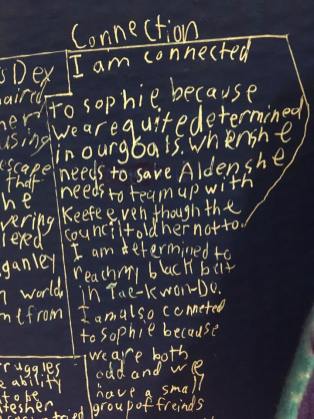 Connection
I am connected
to sophie because
we are quite determined
in our goals. When she
needs to save Alden she
needs to team up with
Keefe even though the
council told her not to.
I am determined to
reach my black belt
in Tae-Kwon-Do.
I am also conneted
to sophie because
we are both
odd and we
have a small
group of freinds
s Dex
haired
her
using
escape
that
he
vering
lexed
ganley
world
me from
ruggles
e ability
to be